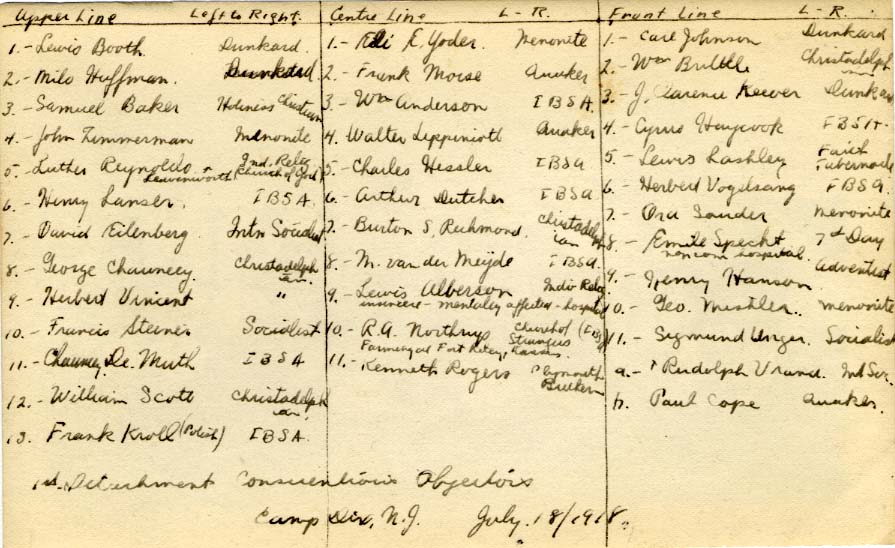 Upper Line Left to Right.
1.- Lewis Booth Dunkard.
2.- Milo Huffman. Dunkard.
3.- Samuel Baker Holiness Christian
4.- John Zimmerman Menonite
5.- Luther Reynolds Ind. Relig.
Leavenworth (Church of God)
6.- Henry Lanser. I B S A.
7.- David Eilenberg. Intn Socialist
8.- George Chauncey. Christadelph
ian.
9.- Herbert Vincent "
10.- Francis Steiner Socialist
11.- Chauncey De Muth I B S A
12.- William Scott Christadelph
ian.
13. Frank Kroll (Polish) I B S A.
Centre Line L - R.
1.- Eli E. Yoder. Menonite
2.- Frank Morse Quaker
3.- Wm Anderson I B S A.
4. Walter Lippincott Quaker
5.- Charles Hessler I B S A
6.- Arthur Dutcher I B S A.
7.- Burton S. Richmond. Christadelph
ian
8.- M. van der Meijde I B S A.
9.- Lewis Alberson Indiv Relig
insincere - mentaley affected - hospital
10.- R.A. Northrup Church of (I B S A)
Strangus
Farmery at Fort Riley, Kansas.
11.- Kenneth Rogers Plymouth
Brethern
Front Line L - R.
1.- Carl Johnson Dunkard
2.- Wm Christadelph
ian
3.- J. Clarence Keever Dunkard
4.- Cyrus Haycook I B S A.
5.- Lewis Lashley Faith
Tabernacle
6.- Herbert Vogelsang I B S A.
7.- Ora Souder Menonite
8.- Emile Specht 7th Day
noncom hospital. Adventist
9.- Henry Hanson
10.- Geo. Mishler. Menonite
11.- Sigmund Unger. Socialist
a.- Rudolph Int Soc.
b. Paul Cope Quaker.
1st. Detachment Conscientious Objectors
Camp Dix, N.J. July. 18/1918.